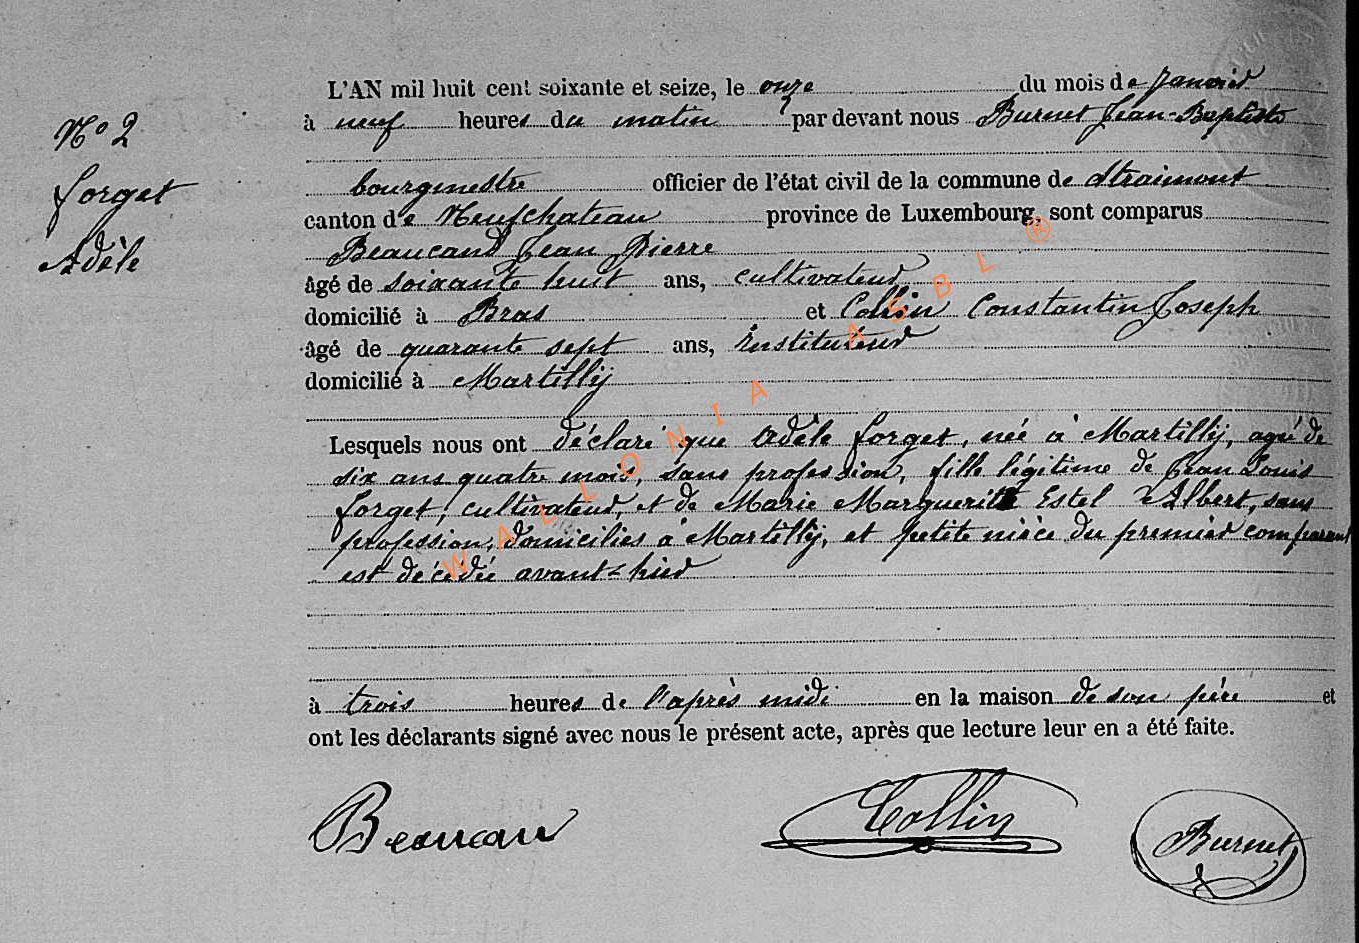 L'AN mil huit cent soixante et seize, le onze du mois de Janvier
Nº 2
à neuf heures du matin par devant nous Burnet Jean-Baptiste
Forget
bourgmestre officier de l'état civil de la commune de Straimont
canton de Neufchateau province de Luxembourg, sont comparus
Adèle
Beaucand Jean Pierre
âgé de soixante huit ans, cultivateur
domicilié à Bras et Collin Constantin Joseph
âgé de quarante sept ans, Instituteur
domicilié à Martilly
Lesquels nous ont déclaré que Adèle Forget, née à Martilly, agé de
six ans quatre mois, sans profession, fille légitime de Jean Louis
Forget, cultivateur, et de Marie Marguerite Estel d'Albert, sans
profession, domiciliés à Martilly, et petite nièce du premier comparant
est décédée avant-hier
à trois heures de l'après midi en la maison de son père et
ont les déclarants signé avec nous le présent acte, après que lecture leur en a été faite.
Collin
Burnet
WALLONIA ASBL ®